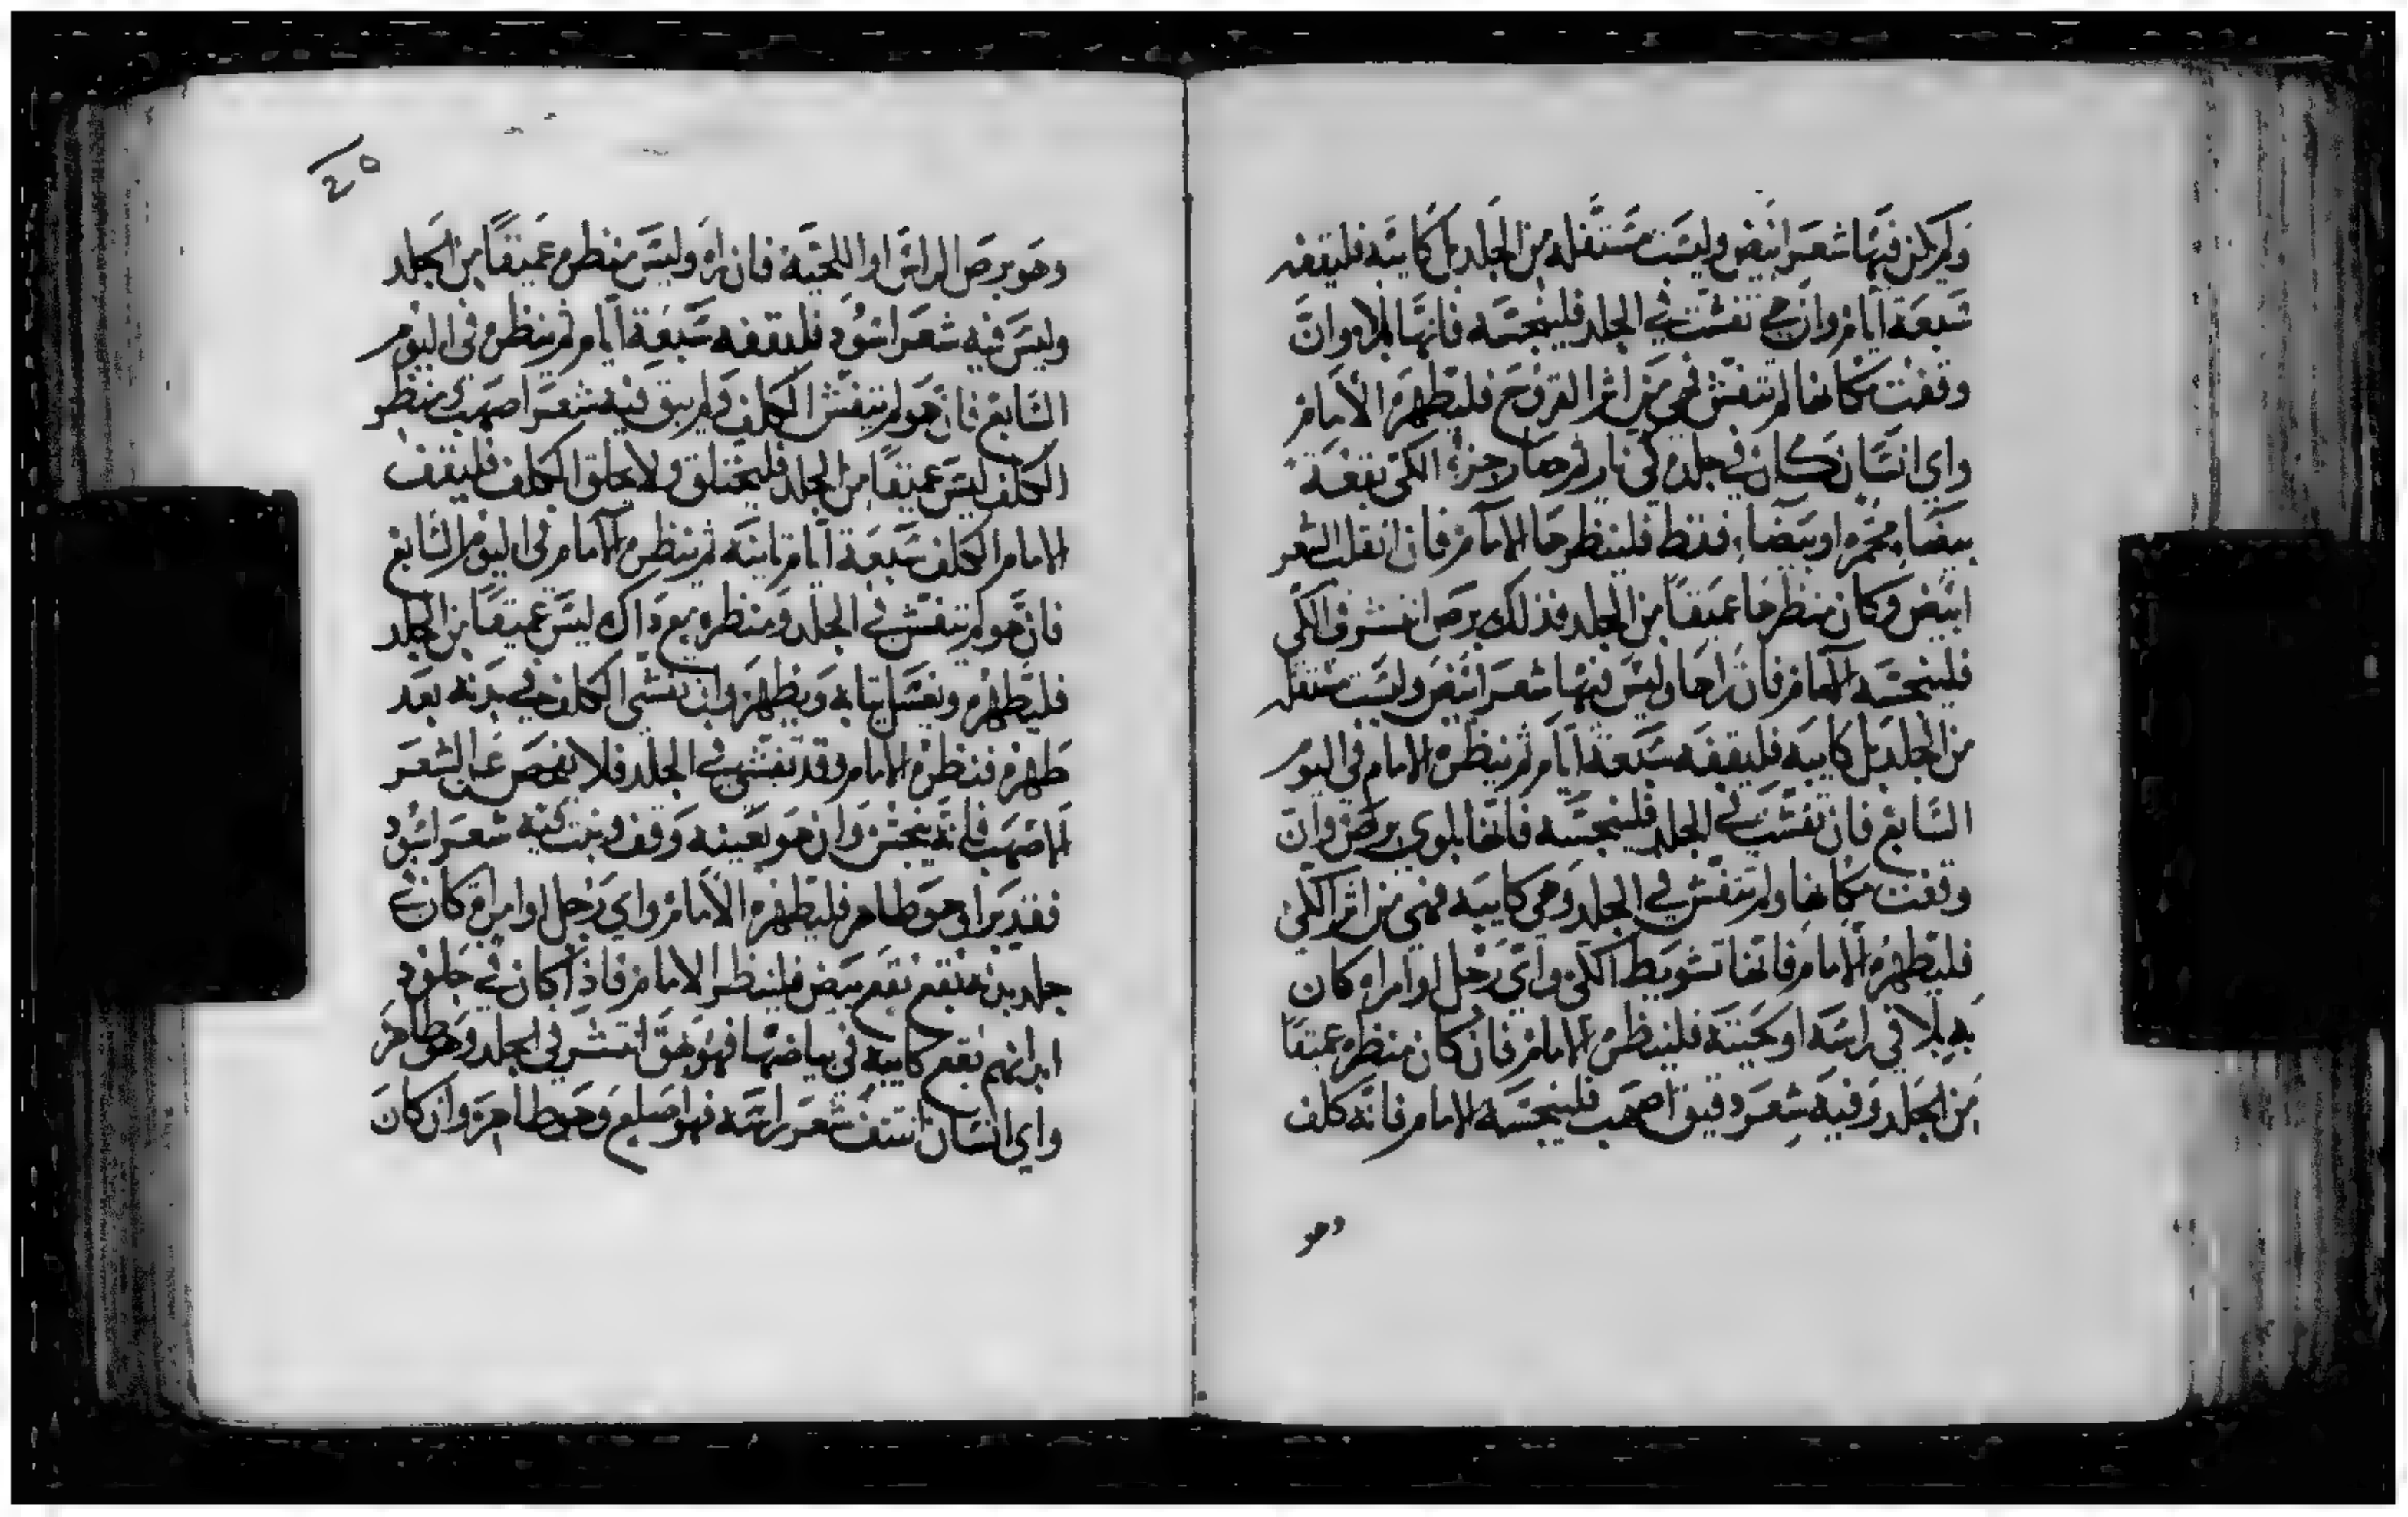 ولم يكن فيها شعر ابيض وليست مستفله من الجلد بل كابيه فليقفه
سبعة ايام وان هي تفشت في الجلد فلينجسه فانها بلاء وان
وقفت مكانها لم تتفش فهي من اثر القروح فليطهره الامام
واي انسان كان في جلده كي نار ثم صار جزؤ الكي بقعة
بيضاء محمره او بيضاء فقط فلينظرها الامام فان انقلب الشعر
ابيض وكان منظرها عميقاً من الجلد فذلك برص انتشر في الكي
فلينجسه الامام فان راها وليس فيها شعر ابيض وليست مستفله
من الجلد بل كابيه فليقفه سبعة ايام ثم ينظره الامام في اليوم
السابع فان تفشت في الجلد فلينجسه فانها بلوي برص وان
وقفت مكانها ولم تتفش في الجلد وهي كابيه فهي من اثر الكي
فليطهره الامام فانها تشويط الكي واي رجل او امراه كان
به بلا في راسه او لحيته فلينظره الامام فان كان منظره عميقا
من الجلد وفيه شعر دقيق اصهب فلينجسه الامام فانه كلف
وهو
٢٥
وهو برص الراس او اللحية فان راه وليس منظره عميقاً من الجلد
وليس فيه شعر اسود فليقفه سبعة ايام ثم ينظره في اليوم
السابع فان هو لم يتفش الكلف ولم يبق فيه شعر اصهب ومنظر
الكلف ليس عميقاً من الجلد فليحتلق ولا يحلق الكلف فليقف
الامام الكلف سبعة ايام ثانيه ثم ينظره الامام في اليوم السابع
فان هو لم يتفش في الجلد ومنظره مع ذاك ليس عميقاً من الجلد
فليطهره ويغسل ثيابه ويطهر وان تفشى الكلف في بدنه بعد
طهره فنظره الامام وقد تفشى في الجلد فلا يفحص عن الشعر
الاصهب فانه ينجس وان هو بعينه وقف ونبت فيه شعر اسود
فقد برا وهو طاهر فليطهره الامام واي رجل او امراة كان في
جلد بدنه بقع بقع بيض فلينظر الامام فاذا كان في جلود
ابدانهم بقع كابيه في بياضها فهو بهق انتشر في الجلد وهو طاهر
واي انسان انتتف شعر راسه فهو اصلع وهو طاهر وان كان